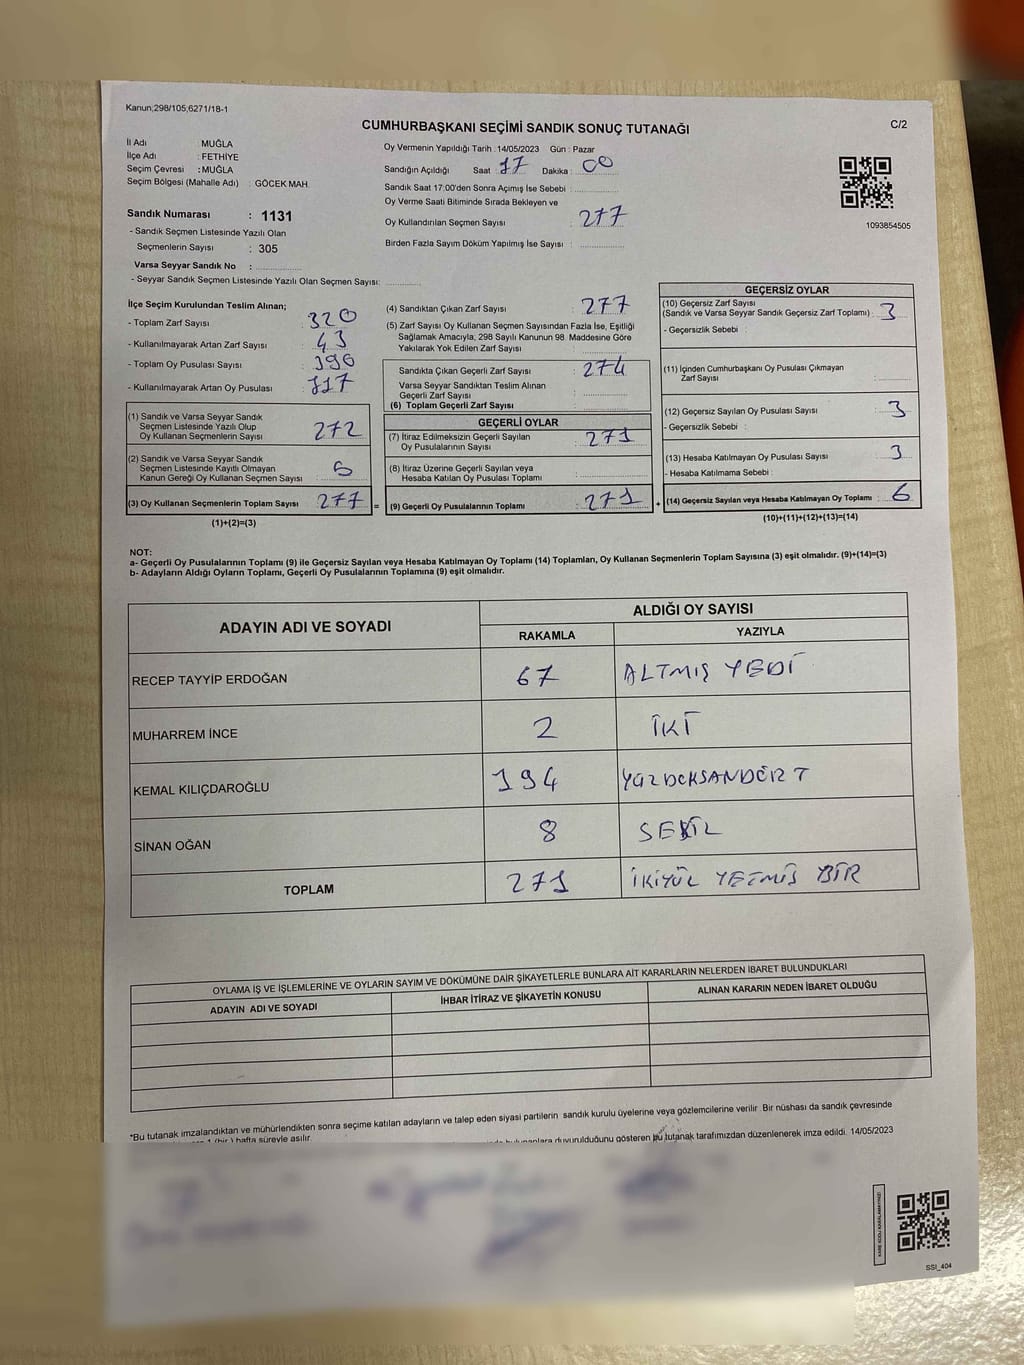 Kanun;298/105,6271/18-1
C/2
CUMHURBAŞKANI SEÇİMİ SANDIK SONUÇ TUTANAĞI
İl Adı : MUĞLA
İlçe Adı : FETHİYE
Seçim Çevresi : MUĞLA
Seçim Bölgesi (Mahalle Adı) : GÖCEK MAH.
Sandık Numarası : 1131
- Sandık Seçmen Listesinde Yazılı Olan
Seçmenlerin Sayısı : 305
Varsa Seyyar Sandık No :
- Seyyar Sandık Seçmen Listesinde Yazılı Olan Seçmen Sayısı:
Oy Vermenin Yapıldığı Tarih : 14/05/2023 Gün : Pazar
Sandığın Açıldığı Saat : 17 Dakika : 00
Sandık Saat 17:00'den Sonra Açımış İse Sebebi :
Oy Verme Saati Bitiminde Sırada Bekleyen ve
Oy Kullandırılan Seçmen Sayısı : 277
Birden Fazla Sayım Döküm Yapılmış İse Sayısı :
1093854505
İlçe Seçim Kurulundan Teslim Alınan;
- Toplam Zarf Sayısı : 320
- Kullanılmayarak Artan Zarf Sayısı : 43
- Toplam Oy Pusulası Sayısı : 390
- Kullanılmayarak Artan Oy Pusulası : 117
(1) Sandık ve Varsa Seyyar Sandık
Seçmen Listesinde Yazılı Olup
Oy Kullanan Seçmenlerin Sayısı : 272
(2) Sandık ve Varsa Seyyar Sandık
Seçmen Listesinde Kayıtlı Olmayan
Kanun Gereği Oy Kullanan Seçmen Sayısı : 6
(3) Oy Kullanan Seçmenlerin Toplam Sayısı : 277 =
(1)+(2)=(3)
(4) Sandıktan Çıkan Zarf Sayısı : 277
(5) Zarf Sayısı Oy Kullanan Seçmen Sayısından Fazla İse, Eşitliği
Sağlamak Amacıyla; 298 Sayılı Kanunun 98. Maddesine Göre
Yakılarak Yok Edilen Zarf Sayısı :
Sandıkta Çıkan Geçerli Zarf Sayısı : 274
Varsa Seyyar Sandıktan Teslim Alınan
Geçerli Zarf Sayısı :
(6) Toplam Geçerli Zarf Sayısı :
GEÇERLİ OYLAR
(7) İtiraz Edilmeksizin Geçerli Sayılan
Oy Pusulalarının Sayısı : 271
(8) İtiraz Üzerine Geçerli Sayılan veya
Hesaba Katılan Oy Pusulası Toplamı :
(9) Geçerli Oy Pusulalarının Toplamı : 271 +
GEÇERSİZ OYLAR
(10) Geçersiz Zarf Sayısı
(Sandık ve Varsa Seyyar Sandık Geçersiz Zarf Toplamı) : 3
- Geçersizlik Sebebi :
(11) İçinden Cumhurbaşkanı Oy Pusulası Çıkmayan
Zarf Sayısı :
(12) Geçersiz Sayılan Oy Pusulası Sayısı : 3
- Geçersizlik Sebebi :
(13) Hesaba Katılmayan Oy Pusulası Sayısı : 3
- Hesaba Katılmama Sebebi :
(14) Geçersiz Sayılan veya Hesaba Katılmayan Oy Toplamı : 6
(10)+(11)+(12)+(13)=(14)
NOT:
a- Geçerli Oy Pusulalarının Toplamı (9) ile Geçersiz Sayılan veya Hesaba Katılmayan Oy Toplamı (14) Toplamları, Oy Kullanan Seçmenlerin Toplam Sayısına (3) eşit olmalıdır. (9)+(14)=(3)
b- Adayların Aldığı Oyların Toplamı, Geçerli Oy Pusulalarının Toplamına (9) eşit olmalıdır.
ADAYIN ADI VE SOYADI
ALDIĞI OY SAYISI
RAKAMLA YAZIYLA
RECEP TAYYİP ERDOĞAN 67 ALTMIŞ YEDİ
MUHARREM İNCE 2 İKİ
KEMAL KILIÇDAROĞLU 194 YÜZDOKSANDÖRT
SİNAN OĞAN 8 SEKİZ
TOPLAM 271 İKİYÜZ YETMİŞ BİR
OYLAMA İŞ VE İŞLEMLERİNE VE OYLARIN SAYIM VE DÖKÜMÜNE DAİR ŞİKAYETLERLE BUNLARA AİT KARARLARIN NELERDEN İBARET BULUNDUKLARI
ADAYIN ADI VE SOYADI İHBAR İTİRAZ VE ŞİKAYETİN KONUSU ALINAN KARARIN NEDEN İBARET OLDUĞU
*Bu tutanak imzalandıktan ve mühürlendikten sonra seçime katılan adayların ve talep eden siyasi partilerin sandık kurulu üyelerine veya gözlemcilerine verilir. Bir nüshası da sandık çevresinde
1 (bir) hafta süreyle asılır. duyurulduğunu gösteren bu tutanak tarafımızdan düzenlenerek imza edildi. 14/05/2023
KARE KODU KARALAMAYINIZ!
SSI_404